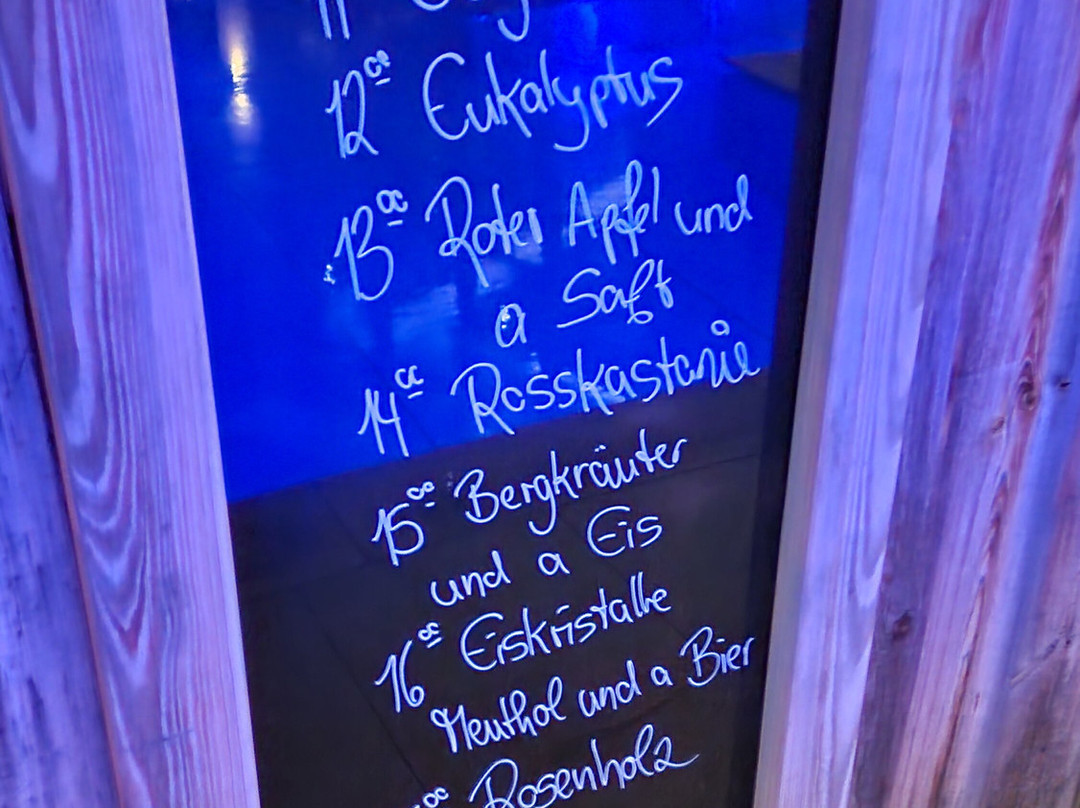 11
12⁰⁰ Eukalyptus
13⁰⁰ Roter Apfel und
a Saft
14⁰⁰ Rosskastanie
15⁰⁰ Bergkräuter
und a Eis
16⁰⁰ Eiskristalle
Menthol und a Bier
⁰⁰ Rosenholz